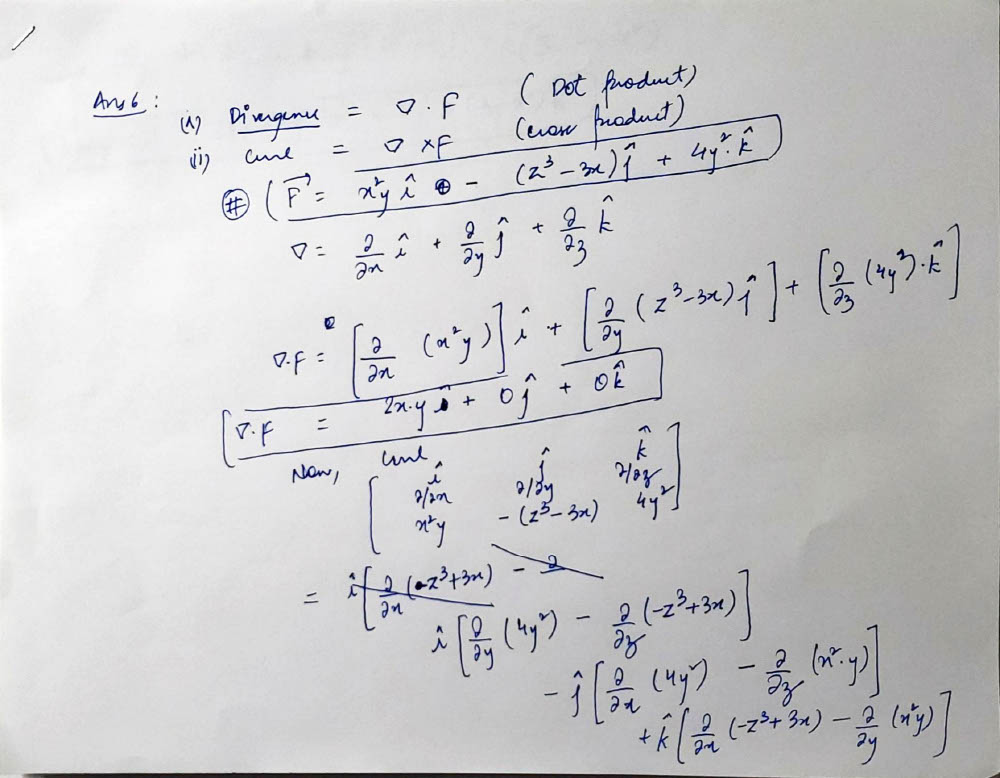 Ans 6 :
(i) Divergence = ∇ . F ( Dot product)
(ii) curl = ∇ × F (cross product)
# ( F⃗ = x²y î - (z³ - 3x) ĵ + 4y² . k̂ )
∇ = ∂/∂x î + ∂/∂y ĵ + ∂/∂z k̂
∇.F = [∂/∂x (x²y)] î + [∂/∂y (z³-3x) ĵ] + [∂/∂z (4y²) . k̂]
∇.F = 2x.y î + 0 ĵ + 0 k̂
Now, curl
î ĵ k̂
∂/∂x ∂/∂y ∂/∂z
x²y - (z³ - 3x) 4y²
= î [∂/∂x (-z³+3x) - ∂
î [∂/∂y (4y²) - ∂/∂z (-z³+3x)]
- ĵ [∂/∂x (4y²) - ∂/∂z (x².y)]
+ k̂ [∂/∂x (-z³+3x) - ∂/∂y (x²y)]